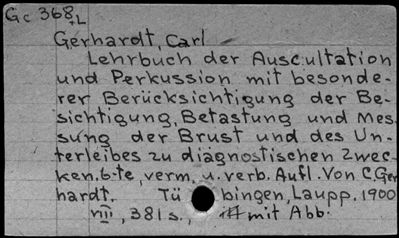 Gc 368,L
Gerhardt, Carl
Lehrbuch der Auscultation
und Perkussion mit besonde-
rer Berücksichtigung der Be-
sichtigung, Betastung und Mes-
sung der Brust und des Un-
terleibes zu diagnostischen Zwec-
ken. 6-te, verm. u. verb. Aufl. Von C. Ger
hardt. Tü bingen, Laupp. 1900
VIII, 381 s., mit Abb.